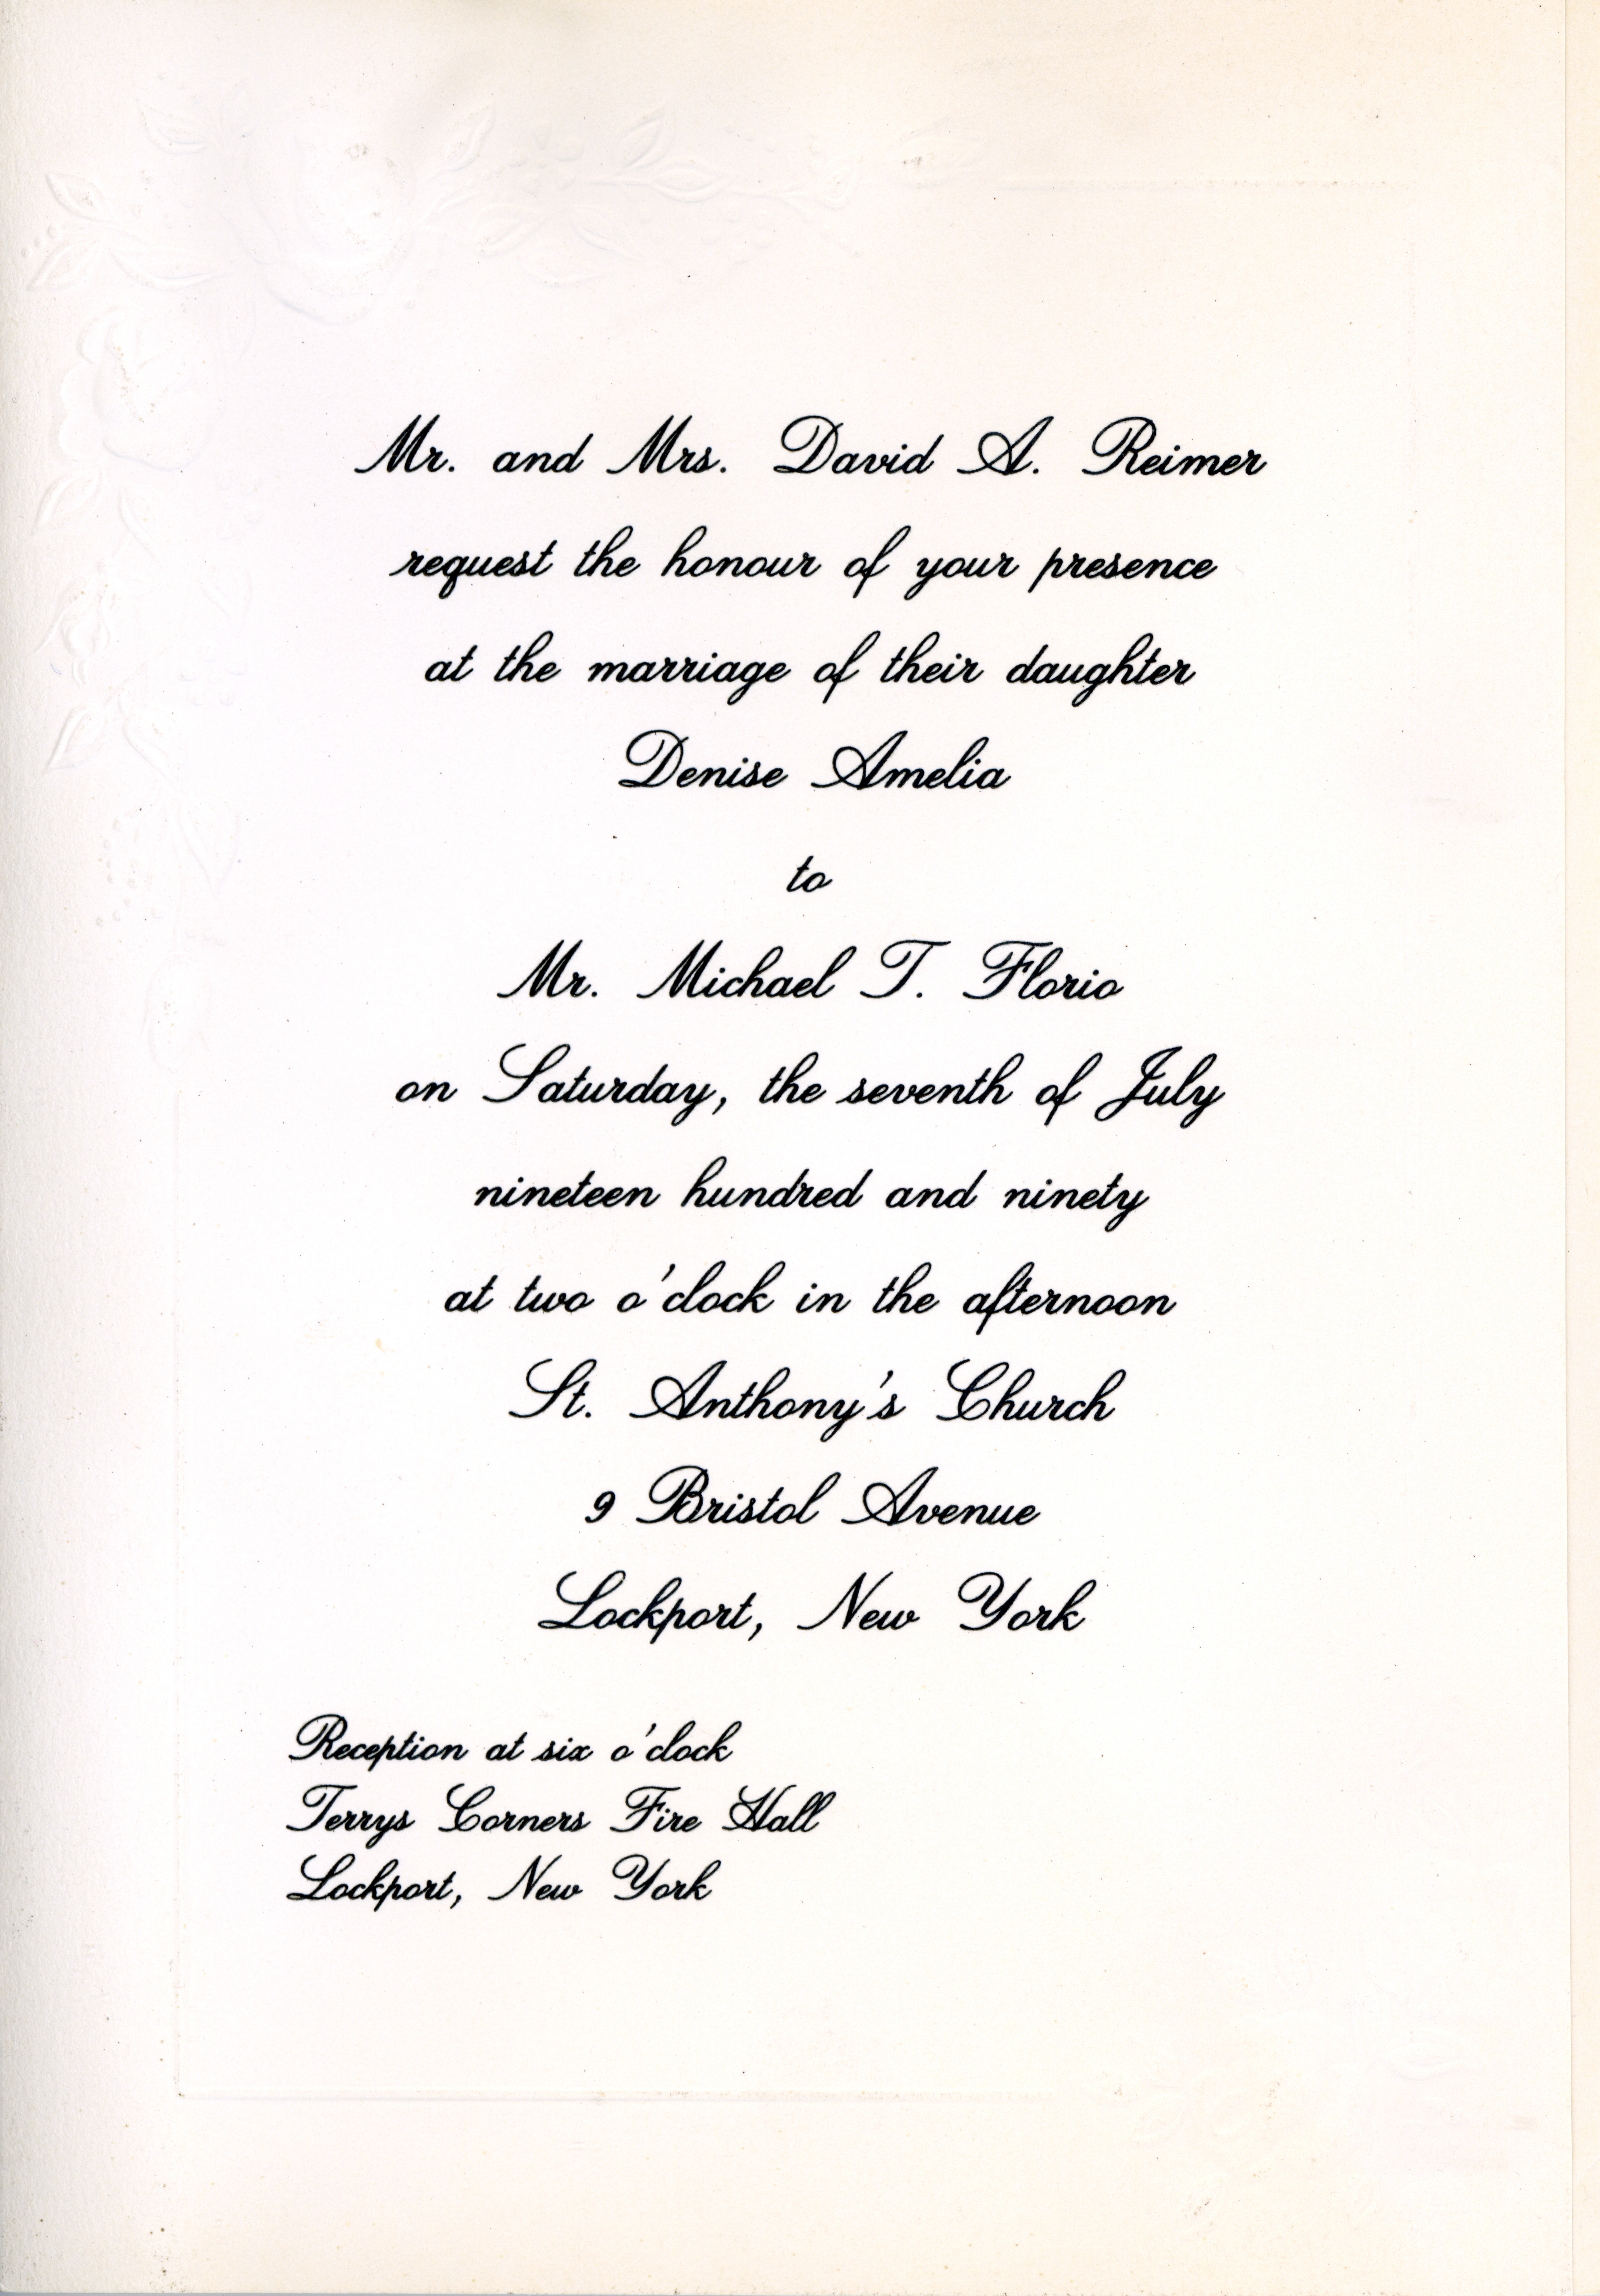 Mr. and Mrs. David A. Reimer
request the honour of your presence
at the marriage of their daughter
Denise Amelia
to
Mr. Michael T. Florio
on Saturday, the seventh of July
nineteen hundred and ninety
at two o'clock in the afternoon
St. Anthony's Church
9 Bristol Avenue
Lockport, New York
Reception at six o'clock
Terrys Corners Fire Hall
Lockport, New York